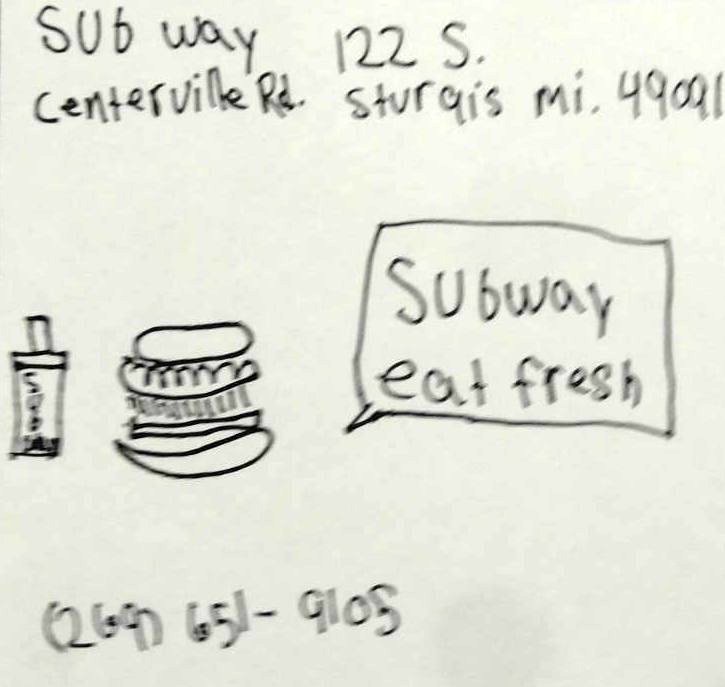 Subway 122 S.
Centerville Rd. Sturgis mi. 49091
Subway
eat fresh
(269) 651-9105